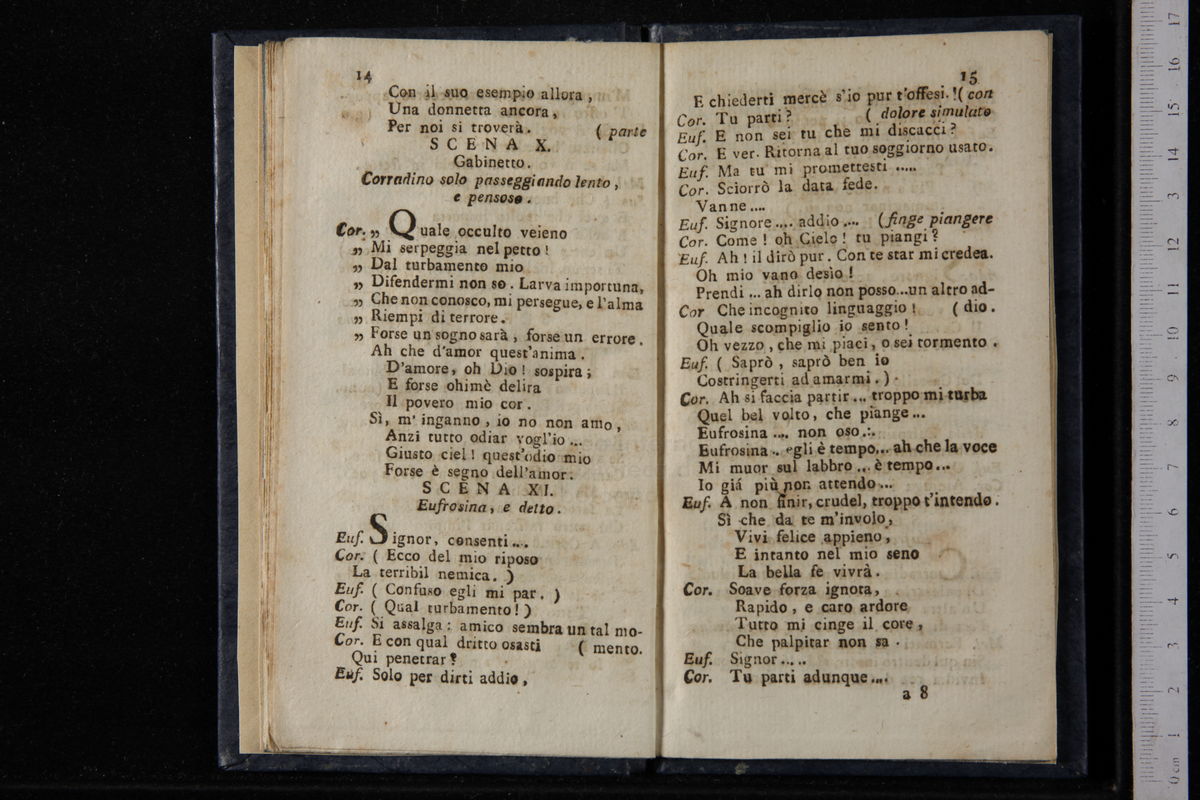 14
Con il suo esempio allora,
Una donnetta ancora,
Per noi si troverà. ( parte
SCENA X.
Gabinetto.
Corradino solo passeggiando lento,
e pensoso.
Cor. „ Quale occulto veieno
„ Mi serpeggia nel petto!
„ Dal turbamento mio
„ Difendermi non so. Larva importuna,
„ Che non conosco, mi persegue, e l'alma
„ Riempi di terrore.
„ Forse un sogno sarà, forse un errore.
Ah che d'amor quest'anima.
D'amore, oh Dio! sospira;
E forse ohimè delira
Il povero mio cor.
Sì, m' inganno, io no non amo,
Anzi tutto odiar vogl'io ...
Giusto ciel! quest'odio mio
Forse è segno dell'amor.
SCENA XI.
Eufrosina, e detto.
Euf. Signor, consenti ....
Cor. ( Ecco del mio riposo
La terribil nemica. )
Euf. ( Confuso egli mi par. )
Cor. ( Qual turbamento! )
Euf. Si assalga: amico sembra un tal mo-
Cor. E con qual dritto osasti ( mento.
Qui penetrar?
Euf. Solo per dirti addio,
15
E chiederti mercè s'io pur t'offesi. !( con
Cor. Tu parti? ( dolore simulato
Euf. E non sei tu che mi discacci?
Cor. E ver. Ritorna al tuo soggiorno usato.
Euf. Ma tu mi promettesti .....
Cor. Sciorrò la data fede.
Vanne ....
Euf. Signore .... addio .... (finge piangere
Cor. Come! oh Cielo! tu piangi?
Euf. Ah! il dirò pur. Con te star mi credea.
Oh mio vano desìo!
Prendi ... ah dirlo non posso...un altro ad-
Cor Che incognito linguaggio! ( dio.
Quale scompiglio io sento!
Oh vezzo, che mi piaci, o sei tormento.
Euf. ( Saprò, saprò ben io
Costringerti ad amarmi. )
Cor. Ah si faccia partir... troppo mi turba
Quel bel volto, che piange...
Eufrosina .... non oso...
Eufrosina .. egli è tempo... ah che la voce
Mi muor sul labbro ... è tempo...
Io giá più non attendo...
Euf. A non finir, crudel, troppo t'intendo.
Sì che da te m'involo,
Vivi felice appieno,
E intanto nel mio seno
La bella fe vivrà.
Cor. Soave forza ignota,
Rapido, e caro ardore
Tutto mi cinge il core,
Che palpitar non sa.
Euf. Signor.....
Cor. Tu parti adunque....
a 8